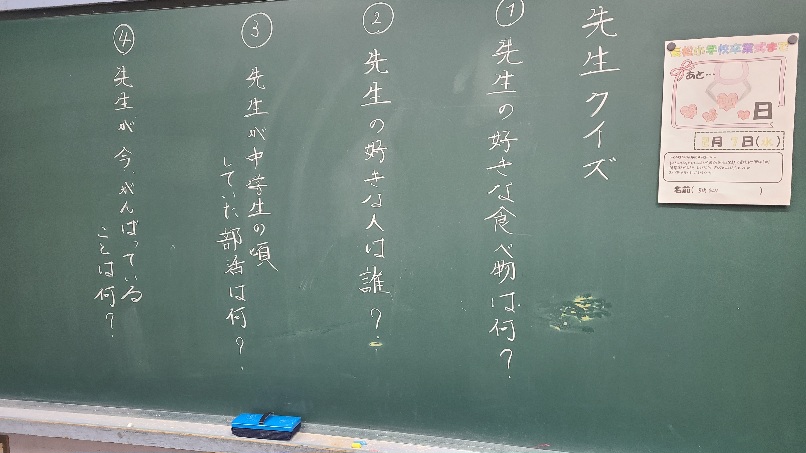 先生クイズ
① 先生の好きな食べ物は何?
② 先生の好きな人は誰?
③ 先生が中学生の頃
していた部活は何?
④ 先生が今、がんばっている
ことは何?
小学校卒業式まで
あと…
日
月 日(水)
名前( )